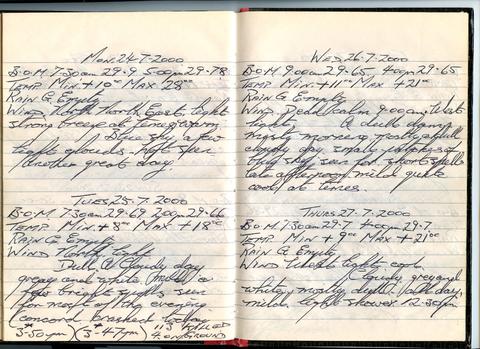 Mon. 24-7-2000
B.O.M. 7-30am 29-9 5-00pm 29-78
Temp Min +10°C Max 28°C
Rain G. Empty
Wind North North East, light
strong breeze at times, warm
Blue sky a few
light clouds. high seen
another great day.
Tues 25-7-2000
B.O.M. 7-30am 29-69 2.00pm 29-66
Temp Min +8°C Max +18°C
Rain G Empty
Wind North light
Dull & Cloudy day
grey and white, and a
few bright spells seen
for most of the evening
Concord crashed today
(3-50pm) (3-47pm) 113 killed
4. on ground
Wed 26-7-2000
B.O.M. 9.00am 29-65 4.00pm 29-65
Temp. Min +11°C Max +21°C
Rain G Empty
Wind Dead calm 9.00am, West
A dull damp
misty morning, mostly a dull
cloudy day, small patches of
blue sky seen for short spells
late afternoon, mild quite
cool at times.
Thurs 27-7-2000
B.O.M. 7-30am 29-7 4-00pm 29-7
Temp. Min +9°C Max +21°C
Rain G Empty
Wind West light cool
Cloudy grey and
white, mostly dull all day,
mild, light shower 12-30pm